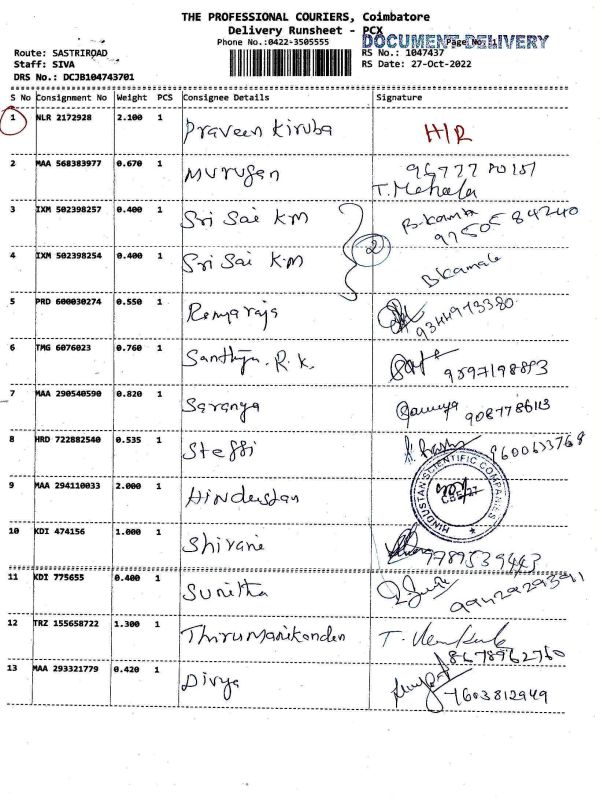 THE PROFESSIONAL COURIERS, Coimbatore
Delivery Runsheet - PCX
DOCUMENT DELIVERY
Phone No.:0422-3505555
Page No.:1
Route: SASTRIROAD
RS No.: 1047437
Staff: SIVA
RS Date: 27-Oct-2022
DRS No.: DCJB104743701
S No Consignment No Weight PCS Consignee Details Signature
1 NLR 2172928 2.100 1 Praveen Kiruba H/R
2 MAA 568383977 0.670 1 Murugan
T. Mehala
3 IXM 502398257 0.400 1 Sri Sai K M B.kamala
97505 84240
2
4 IXM 502398254 0.400 1 Sri Sai K.M Bkamala
5 PRD 600030274 0.550 1 Remyaraja
9344973380
6 TMG 6076023 0.760 1 Santhiya. R. K.
9597198853
7 MAA 290540590 0.820 1 Saranya
9087786113
8 HRD 722882540 0.535 1 Steffi
9600633768
9 MAA 294110033 2.000 1 Hindustan
HINDUSTAN SCIENTIFIC COMPANIES
CBE-27
10 KDI 474156 1.000 1 Shivani
9789539443
11 KDI 775655 0.400 1 Sunitha
12 TRZ 155658722 1.300 1 Thirumanikandan
8678962760
13 MAA 293321779 0.420 1 Divya
7603812949